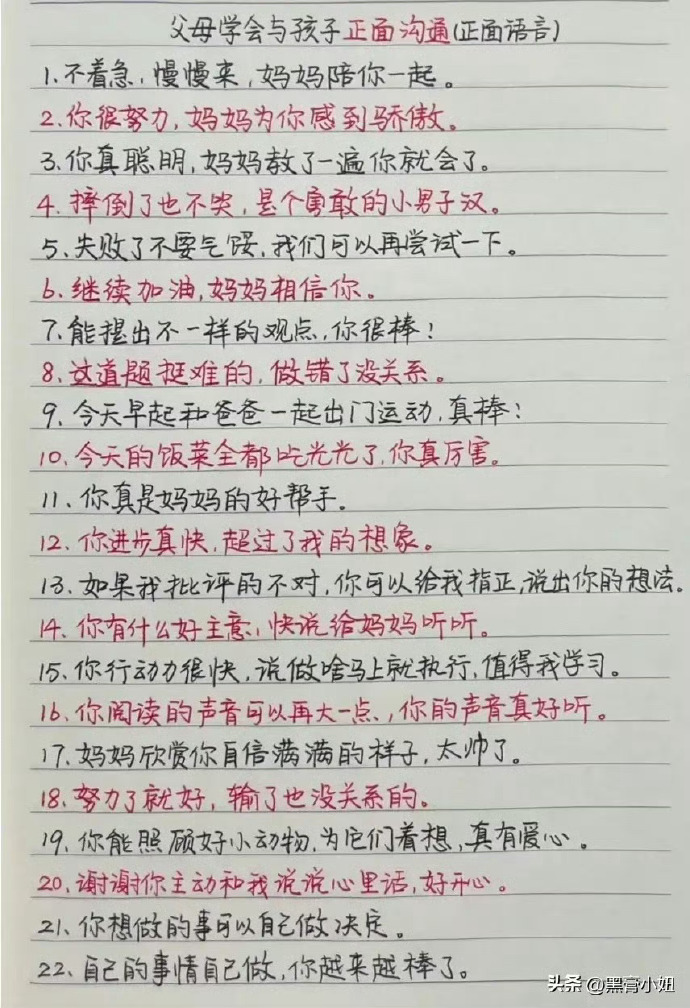 父母学会与孩子正面沟通(正面语言)
1.不着急,慢慢来,妈妈陪你一起。
2.你很努力,妈妈为你感到骄傲。
3.你真聪明,妈妈教了一遍你就会了。
4.摔倒了也不哭,是个勇敢的小男子汉。
5.失败了不要气馁,我们可以再尝试一下。
6.继续加油,妈妈相信你。
7.能提出不一样的观点,你很棒!
8.这道题挺难的,做错了没关系。
9.今天早起和爸爸一起出门运动,真棒!
10.今天的饭菜全都吃光光了,你真厉害。
11.你真是妈妈的好帮手。
12.你进步真快,超过了我的想象。
13.如果我批评的不对,你可以给我指正,说出你的想法。
14.你有什么好主意,快说给妈妈听听。
15.你行动力很快,说做啥马上就执行,值得我学习。
16.你阅读的声音可以再大一点,你的声音真好听。
17.妈妈欣赏你自信满满的样子,太帅了。
18.努力了就好,输了也没关系的。
19.你能照顾好小动物,为它们着想,真有爱心。
20.谢谢你主动和我说说心里话,好开心。
21.你想做的事可以自己做决定。
22.自己的事情自己做,你越来越棒了。
头条 @黑膏小姐